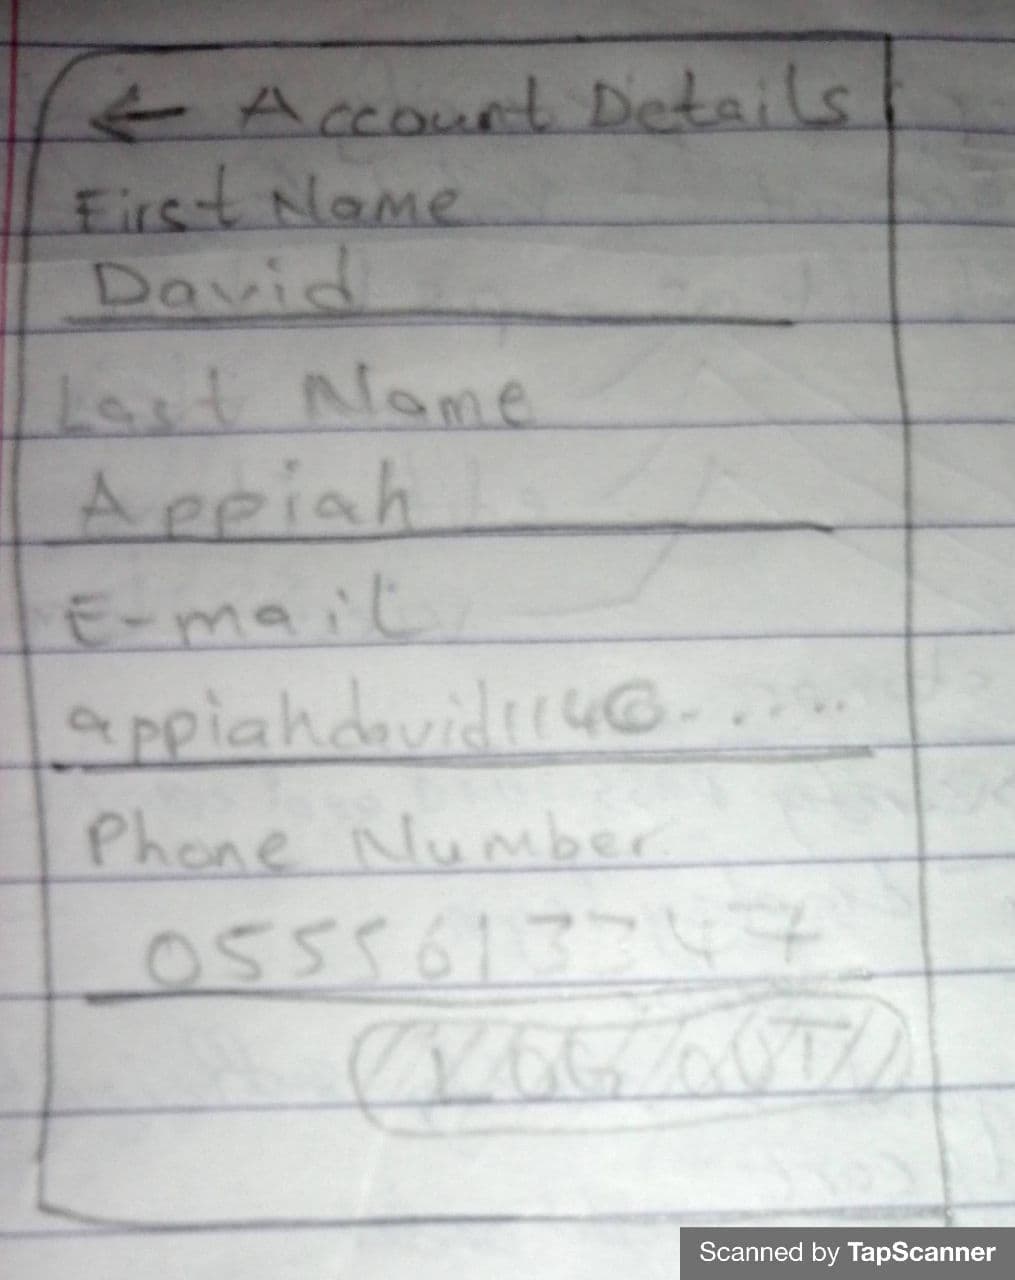 ← Account Details
First Name
David
Last Name
Appiah
E-mail
appiahdavid114@-.....
Phone Number
LOG OUT
Scanned by TapScanner